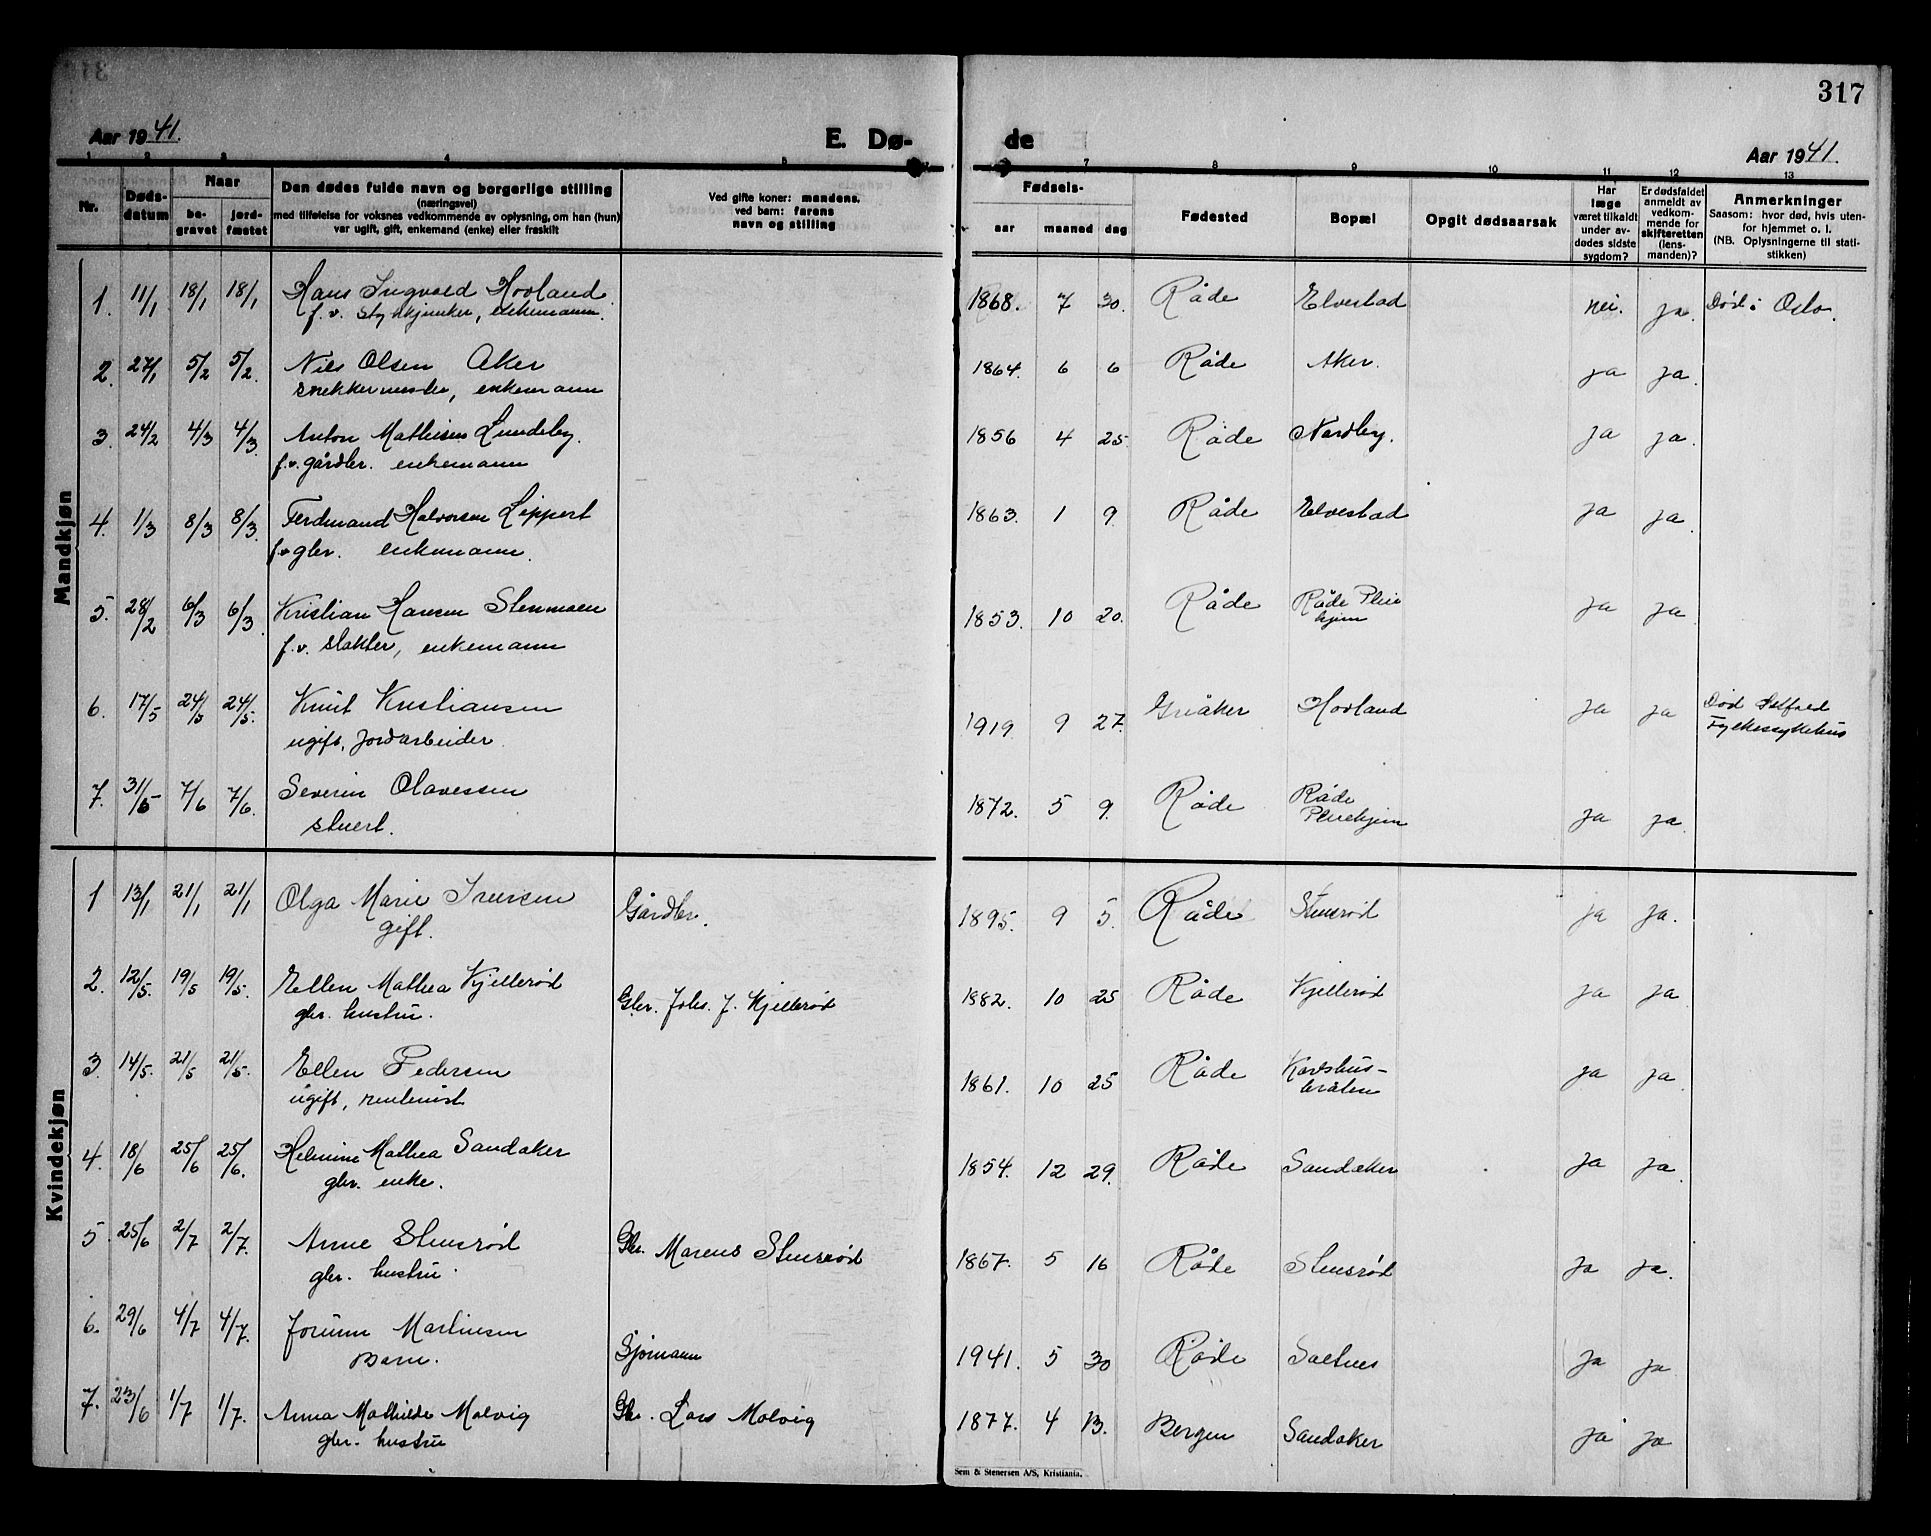 317
Aar 1941.
E. Dø-
de
Aar 1941.
1 2 3 4 5 7 8 9 10 11 12 13
Nr.
Døds-
datum
Naar
be-
gravet
jord-
fæstet
Den dødes fulde navn og borgerlige stilling
(næringsvei)
med tilføielse for voksnes vedkommende av oplysning, om han (hun)
var ugift, gift, enkemand (enke) eller fraskilt
Ved gifte koner: mandens,
ved barn: farens
navn og stilling
Fødsels-
aar maaned dag
Fødested
Bopæl
Opgit dødsaarsak
Har
læge
været tilkaldt
under av-
dødes sidste
sygdom?
Er dødsfaldet
anmeldt av
vedkom-
mende for
skifteretten
(lens-
manden)?
Anmerkninger
Saasom: hvor død, hvis uten-
for hjemmet o. l.
(NB. Oplysningerne til stati-
stikken)
Mandkjøn
1. 11/1 18/1 18/1 Hans Ingvald Hovland 1868. 7 30. Råde Elvestad nei. ja. Död i Oslo.
f. v. stykkjunker, enkemann.
2. 27/1 5/2 5/2. Nils Olsen Aker 1864. 6 6 Råde Aker. ja ja.
snekkermester, enkemann
3. 24/2 4/3 4/3. Anton Mathisen Lundeby. 1856 4 25. Råde Nordby. ja ja.
f.v. gårdbr. enkemann
4. 1/3 8/3 8/3. Ferdinand Halvorsen Lippert 1863. 1 9. Råde Elvestad ja ja.
f.v gbr. enkemann.
5. 28/2 6/3 6/3. Kristian Hansen Stenmoen 1853. 10 20. Råde Råde Pleie ja ja
hjem
f. v. slakter, enkemann
6. 17/5 24/5 24/5. Knut Kristiansen 1919 9 27. Greåker Hovland ja ja Död Østfold
Fylkessykehus
ugift, jordarbeider.
7. 31/5 7/6 7/6. Severin Olavessen 1872. 5 9. Råde Råde
Pleiehjem ja ja.
stuert.
Kvindekjøn
1 13/1 21/1 21/1 Olga Marie Iversen Gårdbr. 1895. 9 5. Råde Stensrød ja ja.
gift.
2. 12/5. 19/5 19/5. Ellen Mathea Kjellerød Gbr. Johs. J. Kjellerød 1882. 10 25 Råde Kjellerød ja ja
gbr. hustru.
3. 14/5. 21/5 21/5. Ellen Pedersen 1861. 10 25 Råde Karlshus-
bråten ja ja.
ugift, rentenist
4. 18/6 25/6 25/6. Helmine Mathea Sandaker 1854. 12 29. Råde Sandaker ja ja.
gbr. enke.
5. 25/6 2/7 2/7. Anne Stensrød Gbr. Marius Stensrød 1867. 5 16 Råde Stensrød ja ja.
gbr. hustru.
6. 29/6 4/7 4/7. Jorunn Martinsen Sjömann 1941. 5 30 Råde Saltnes ja ja
Barn.
7. 23/6 1/7 1/7. Anna Mathilde Molvig Gbr. Lars Molvig 1877. 4 13. Bergen Sandaker ja ja
gbr. hustru
Sem & Stenersen A/S, Kristiania.